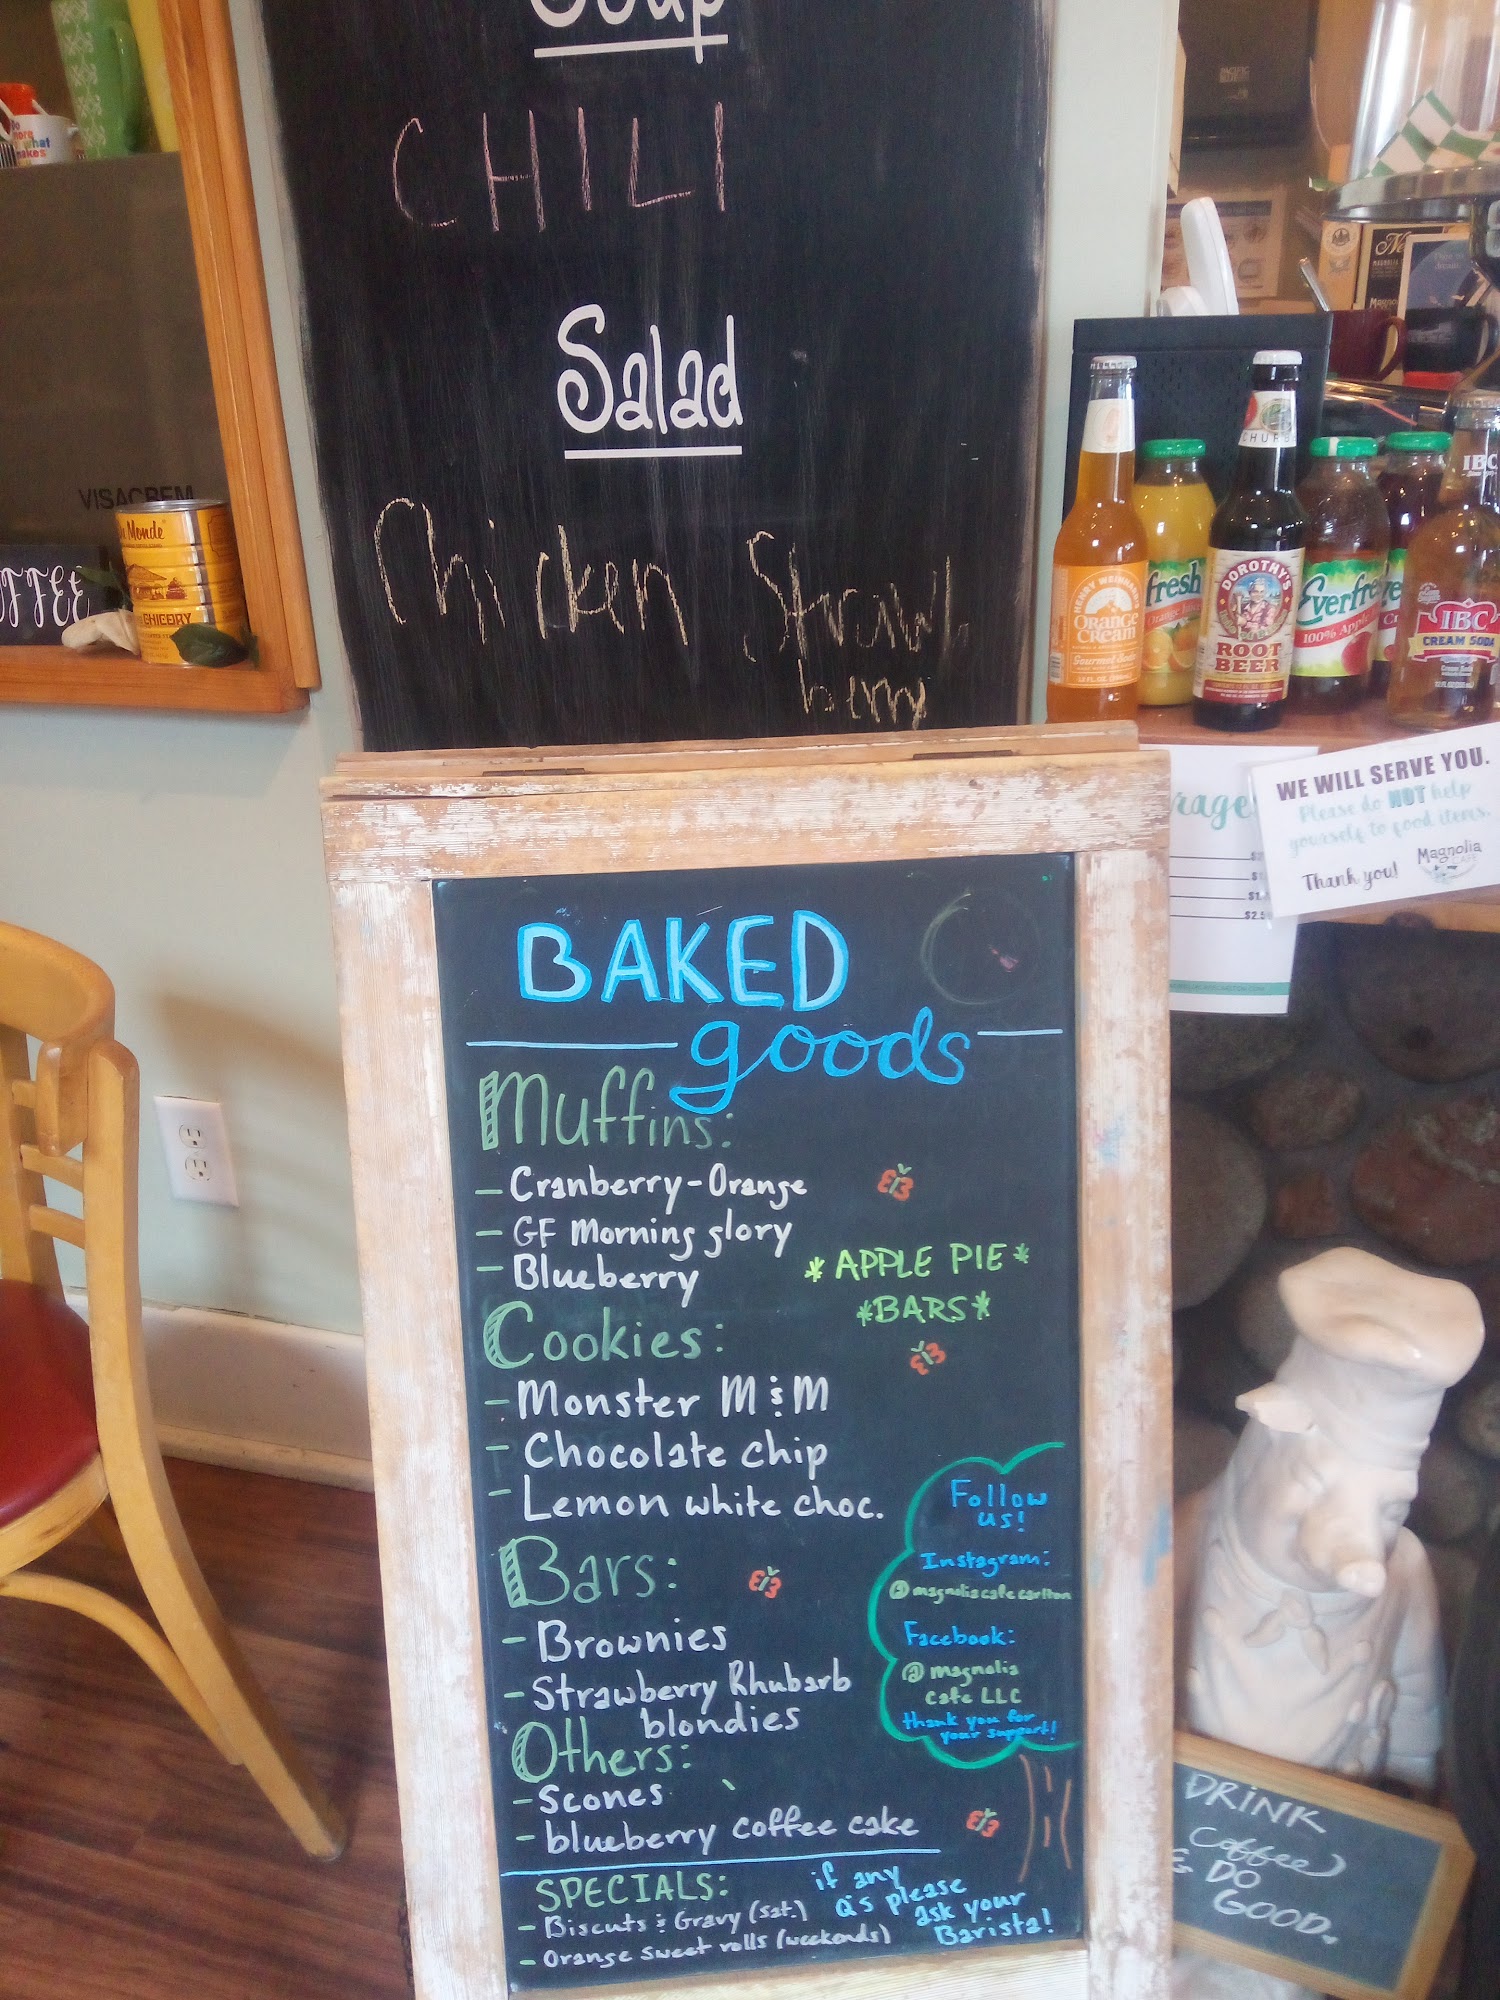 Soup
CHILI
Salad
Chicken Strawl.
berry
BAKED
goods
Muffins:
- Cranberry-Orange
- GF Morning glory
- Blueberry
* APPLE PIE *
* BARS *
Cookies:
- Monster M & M
- Chocolate chip
- Lemon white choc.
Bars:
- Brownies
- Strawberry Rhubarb
blondies
Others:
- Scones
- blueberry coffee cake
Follow
us!
Instagram:
@magnoliacafecarlton
Facebook:
@magnolia
cafe LLC
thank you for
your support!
SPECIALS:
- Biscuts & Gravy (sat.)
- Orange sweet rolls (weekends)
if any
Q's please
ask your
Barista!
WE WILL SERVE YOU.
Please do NOT help
yourself to food items.
Thank you!
Magnolia
CAFE
HENRY WEINHARD'S
ORANGE
CREAM
Gourmet Soda
12 FL. OZ.
fresh
Orange Juice
DOROTHY'S
ROOT
BEER
Everfre
100% Apple
IBC
IBC
CREAM SODA
DRINK
Coffee
& DO
GOOD.
Monde
CHICORY
PACIFIC